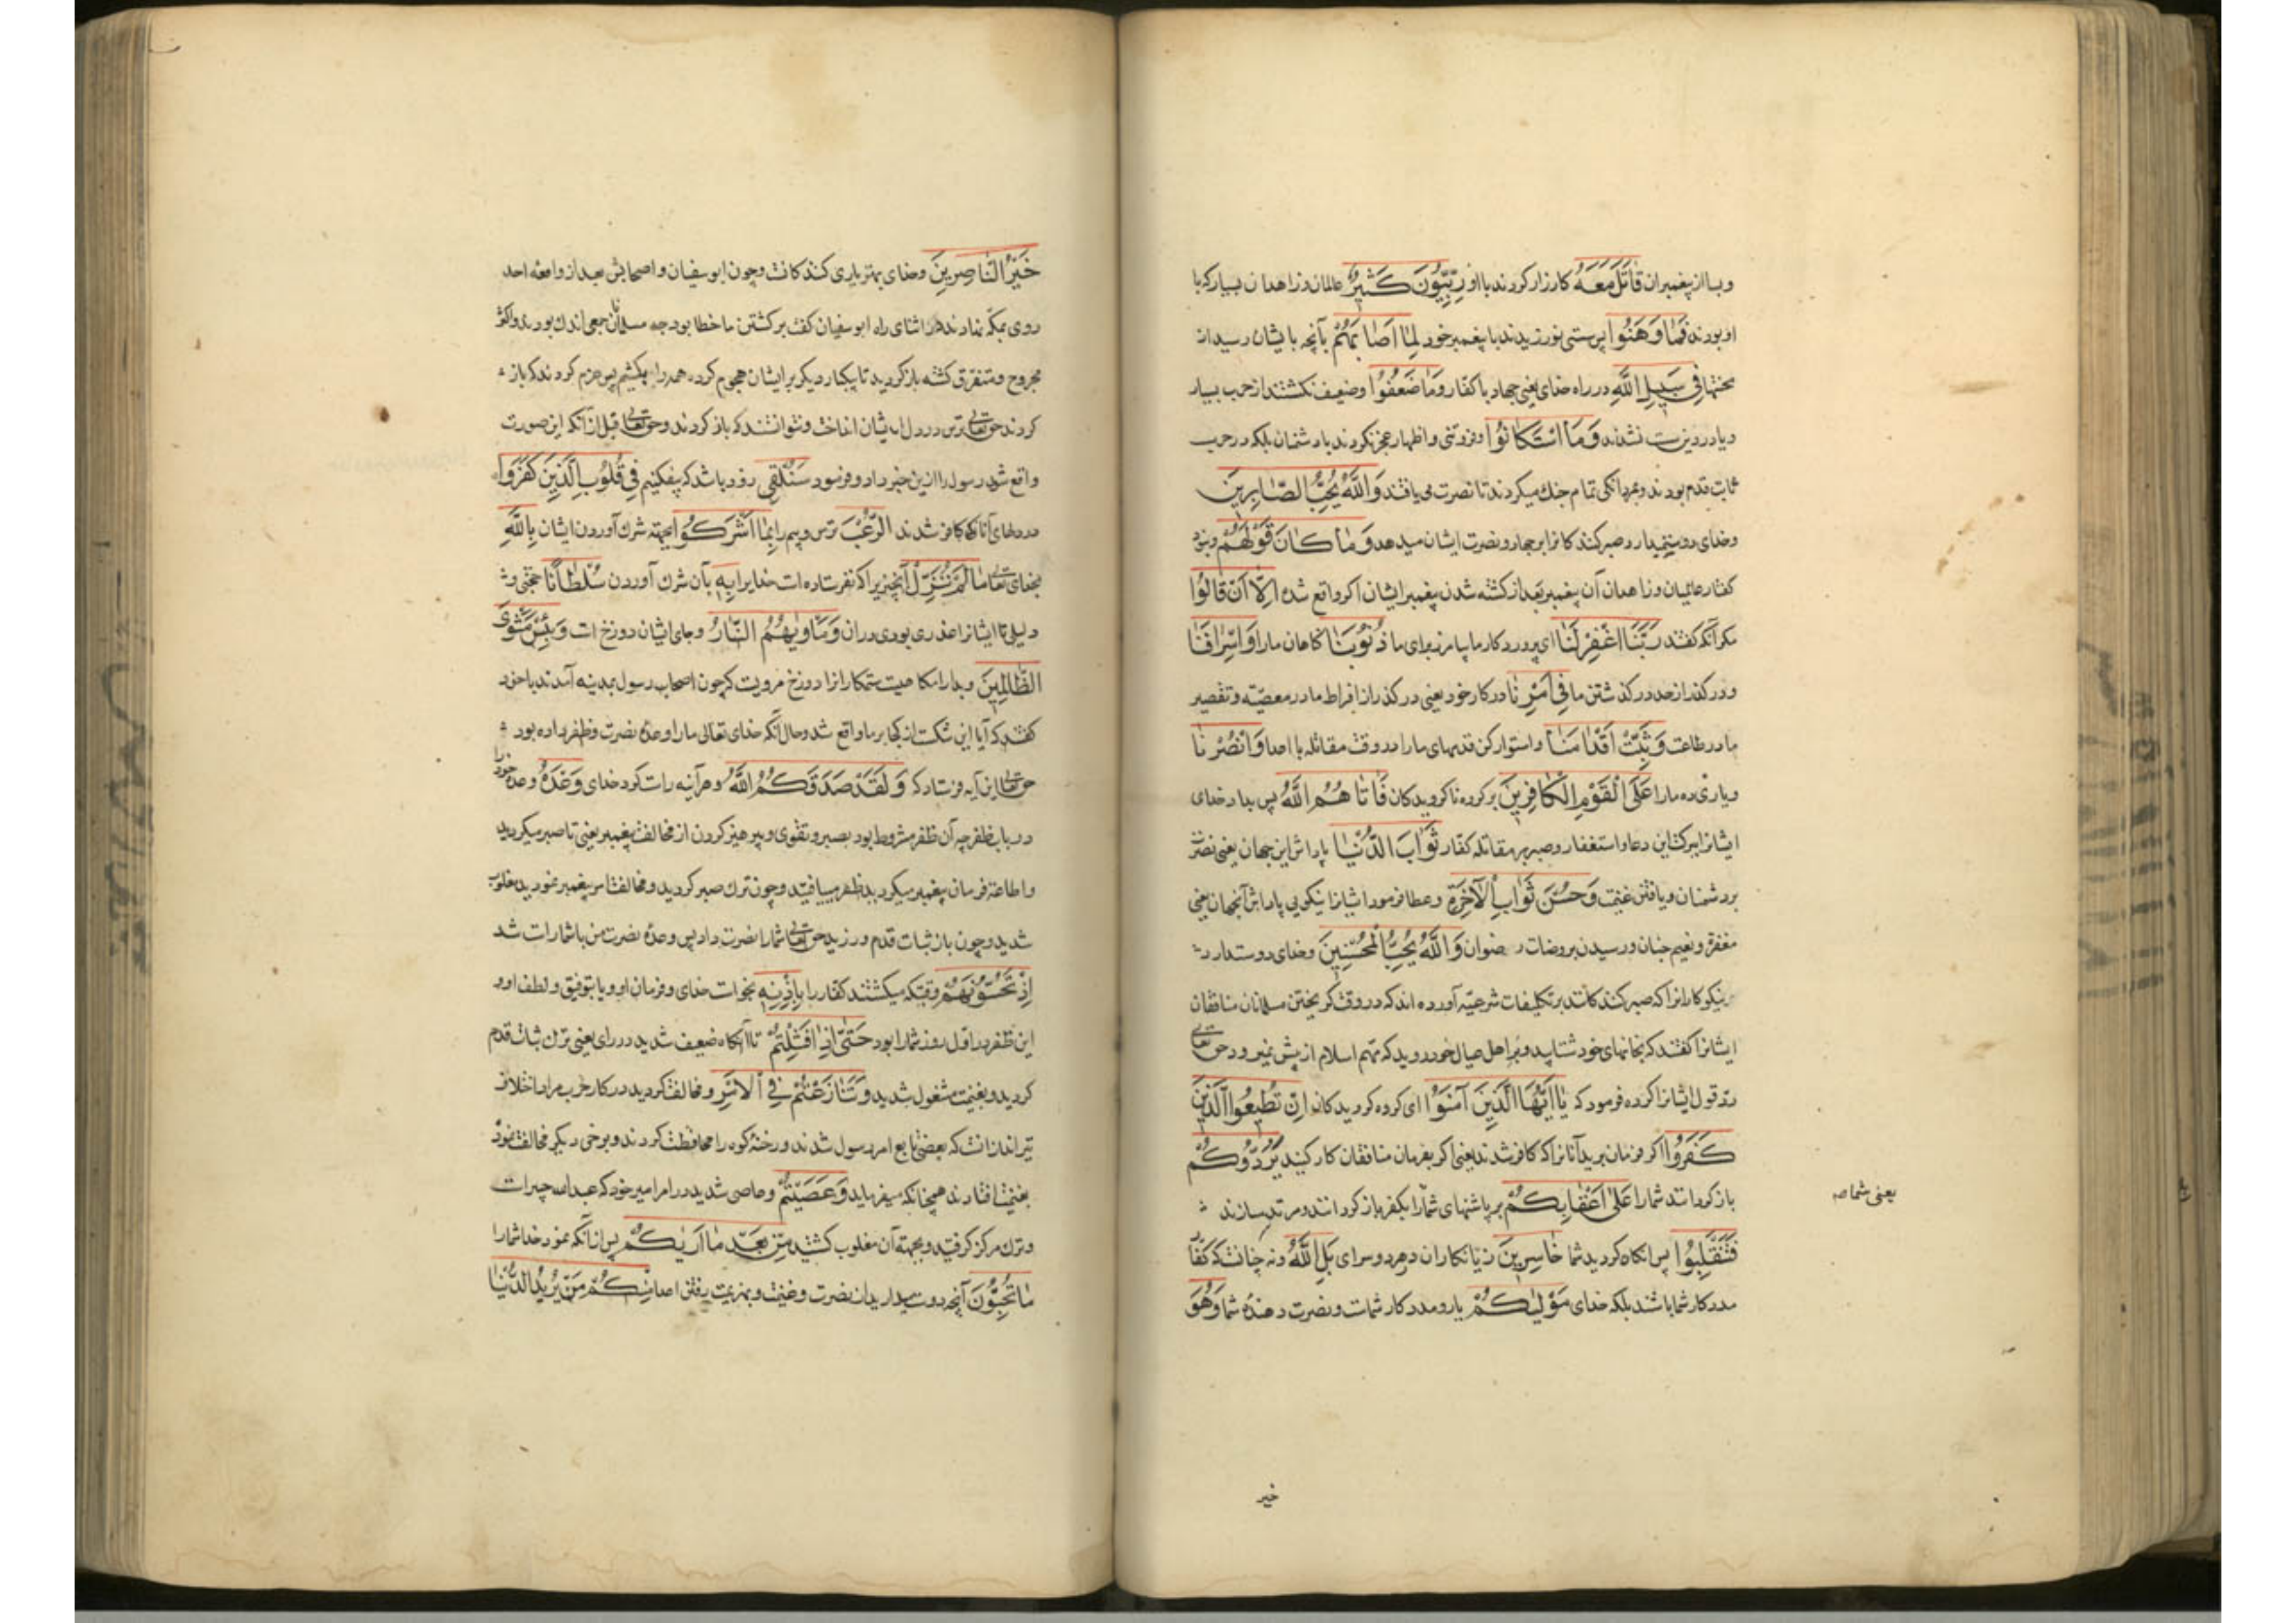 وبسا از پیغمبران قَاتَلَ مَعَهُ کارزار کردند با او رِبِّیُّونَ کَثِیرٌ عالمان و زاهدان بسیار که با
او بودند فَمَا وَهَنُوا پس سستی نورزیدند با پیغمبر خود لِمَا اَصَابَهُمْ بآنچه بایشان رسید از
محنتها فِی سَبِیلِ اللَّهِ در راه خدای یعنی جهاد با کفار وَمَا ضَعُفُوا وضعیف نکشتند از حرب بسیار
ویا در دین سست نشدند وَمَا اسْتَکَانُوا وفروتنی واظهار عجز نکردند با دشمنان بلکه در حرب
ثابت قدم بودند وبمردانکی تمام جنك میکردند تا نصرت می یافتند وَاللَّهُ یُحِبُّ الصَّابِرِینَ
وخدای دوست میدارد صبر کنندکانرا بر جهاد ونصرت ایشان میدهد وَمَا کَانَ قَوْلَهُمْ ونبود
کفتار عالمیان وزاهدان آن پیغمبر بعد از کشته شدن پیغمبر ایشان اکر واقع شده اِلَّا اَنْ قَالُوا
مکر آنکه کفتند رَبَّنَا اغْفِرْ لَنَا ای پروردکار ما بیامرز برای ما ذُنُوبَنَا کناهان ما را وَاِسْرَافَنَا
ودر کذر از حد در کذشتن ما فِی اَمْرِنَا در کار خود یعنی در کذر از افراط ما در معصیة وتقصیر
ما در طاعت وَثَبِّتْ اَقْدَامَنَا واستوار کن قدمهای ما را در وقت مقاتله با اعدا وَانْصُرْنَا
ویاری ده ما را عَلَی الْقَوْمِ الْکَافِرِینَ بر کروه ناکرویدکان فَاٰتَاهُمُ اللَّهُ پس بداد خدای
ایشانرا ببرکت این دعا واستغفار وصبر بر مقاتله کفار ثَوَابَ الدُّنْیَا پاداش این جهان یعنی نصرت
بر دشمنان ویافتن غنیمت وَحُسْنَ ثَوَابِ الْاٰخِرَةِ وعطا فرمود ایشانرا نیکویی پاداش آنجهان یعنی
مغفرة ونعیم جنان ورسیدن بروضات رضوان وَاللَّهُ یُحِبُّ الْمُحْسِنِینَ وخدای دوست دارد
نیکوکارانرا که صبر کنندکانند بر تکلیفات شرعیه آورده اند که در وقت کریختن مسلمانان منافقان
ایشانرا کفتند که بخانهای خود شتابید وبر اهل عیال خود روید که مهم اسلام از پیش نمیرود حق تعالی
رد قول ایشانرا کرده فرمود که یَا اَیُّهَا الَّذِینَ آمَنُوا ای کروه کرویدکان اِنْ تُطِیعُوا الَّذِینَ
کَفَرُوا اکر فرمان برید آنانرا که کافر شدند یعنی اکر بفرمان منافقان کار کنید یَرُدُّوکُمْ
باز کردانند شما را عَلَی اَعْقَابِکُمْ بر پاشنهای شما را بکفر باز کردانند ومرتد سازند
یعنی شما
فَتَنْقَلِبُوا پس آنکاه کردید شما خَاسِرِینَ زیانکاران در هر دو سرای بَلِ اللَّهُ ونه چنانست که کفا
مددکار شما باشند بلکه خدای مَوْلٰیکُمْ یار ومددکار شماست ونصرت دهندهٔ شما وَهُوَ
خیر
خَیْرُ النَّاصِرِینَ وخدای بهتر یاری کنندکانست وچون ابو سفیان واصحابش بعد از واقعه احد
روی بمکه نهادند در اثنای راه ابو سفیان کفت برکشتن ما خطا بود چه مسلمانان جمعی اندك بودند واکثر
مجروح ومتفرق کشته باز کردید تا یکبار دیکر بر ایشان هجوم کرده همه را بکشیم پس عزم کردند که باز
کردند حق تعالی ترس در دل ایشان انداخت ونتوانستند که باز کردند وحق تعالی قبل از آنکه این صورت
واقع شود رسول را ازین خبر داد وفرمود سَنُلْقِی زود باشد که بیفکنیم فِی قُلُوبِ الَّذِینَ کَفَرُوا
در دلهای آنانکه کافر شدند الرُّعْبَ ترس وبیم را بِمَا اَشْرَکُوا بجهة شرك آوردن ایشان بِاللَّهِ
بخدای تعالی مَا لَمْ یُنَزِّلْ آنچیزیرا که نفرستاده است خدا یرا بِهِ بآن شرك آوردن سُلْطَانًا حجتی و
دلیلی تا ایشانرا عذری بودی در آن وَمَأْوٰیهُمُ النَّارُ وجای ایشان دوزخ است وَبِئْسَ مَثْوَی
الظَّالِمِینَ وبد آرامکاهیست ستمکارانرا دوزخ مرویست که چون اصحاب رسول بمدینه آمدند با خود
کفتند که آیا این شکست از کجا بر ما واقع شد وحال آنکه خدای تعالی ما را وعدهٔ نصرت وظفر داده بود
حق تعالی این آیه فرستاد که وَلَقَدْ صَدَقَکُمُ اللَّهُ وهر آینه راست کرد خدای وَعْدَهُ وعده خود را
در باب ظفر چه آن ظفر مشروط بود بصبر وتقوی وپرهیز کردن از مخالفت پیغمبر یعنی تا صبر میکردید
واطاعة فرمان پیغمبر میکردید ظفر مییافتید وچون ترك صبر کردید ومخالفت امر پیغمبر نمودید مغلوب
شدید وچون باز ثبات قدم ورزیدید حق تعالی شما را نصرت داد پس وعدهٔ نصرت من با شما راست شد
اِذْ تَحُسُّونَهُمْ وقتیکه میکشتند کفار را بِاِذْنِهِ بخواست خدای وفرمان او ویا بتوفیق ولطف او و
این ظفر در اول روز شما را بود حَتَّی اِذَا فَشِلْتُمْ تا آنکاه ضعیف شدید در رای یعنی ترك ثبات قدم
کردید وبغنیمت مشغول شدید وَتَنَازَعْتُمْ فِی الْاَمْرِ ومخالفت کردید در کار حرب مراد اختلاف
تیراندازانست که بعضی تابع امر رسول شدند ورخنهٔ کوه را محافظت کردند وبرخی دیکر مخالفت نموده
بغنیمت افتادند همچنانکه میفرماید وَعَصَیْتُمْ وعاصی شدید در امر امیر خود که عبدالله جبیر است
وترك مرکز کرفتید وبجهة آن مغلوب کشتید مِنْ بَعْدِ مَا اَرٰیکُمْ پس از آنکه نمود خدا شما را
مَا تُحِبُّونَ آنچه دوست میدارید از نصرت وغنیمت وبهزیمت رفتن اعدا مِنْکُمْ مَنْ یُرِیدُ الدُّنْیَا